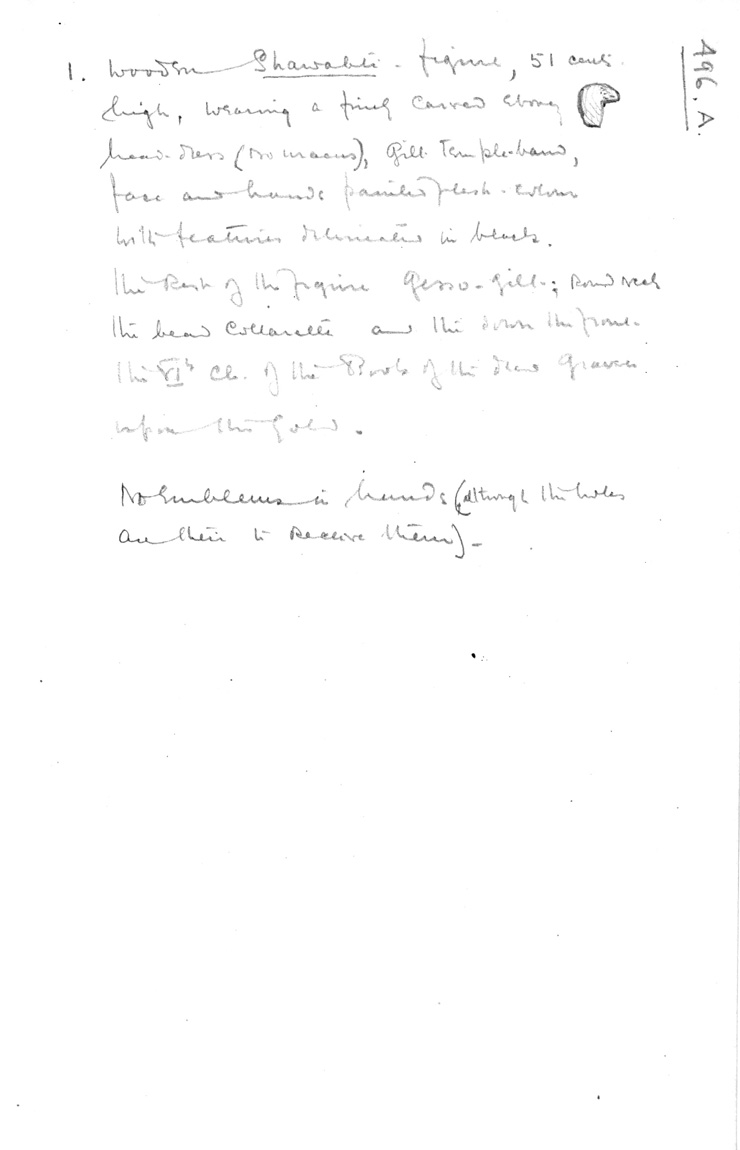 496. A.
1. Wooden Shawabti-figure, 51 cents.
high, wearing a finely carved ebony
head-dress (no uraeus), gilt temple-band,
face and hands painted flesh-colour
with features delineated in black.
The Rest of the figure gesso-gilt-; Round neck
the bead collarette and the down the front
the VIth Ch. of the Book of the dead graven
upon the gold.
No Emblems in hands (although the holes
are their to Receive them)-